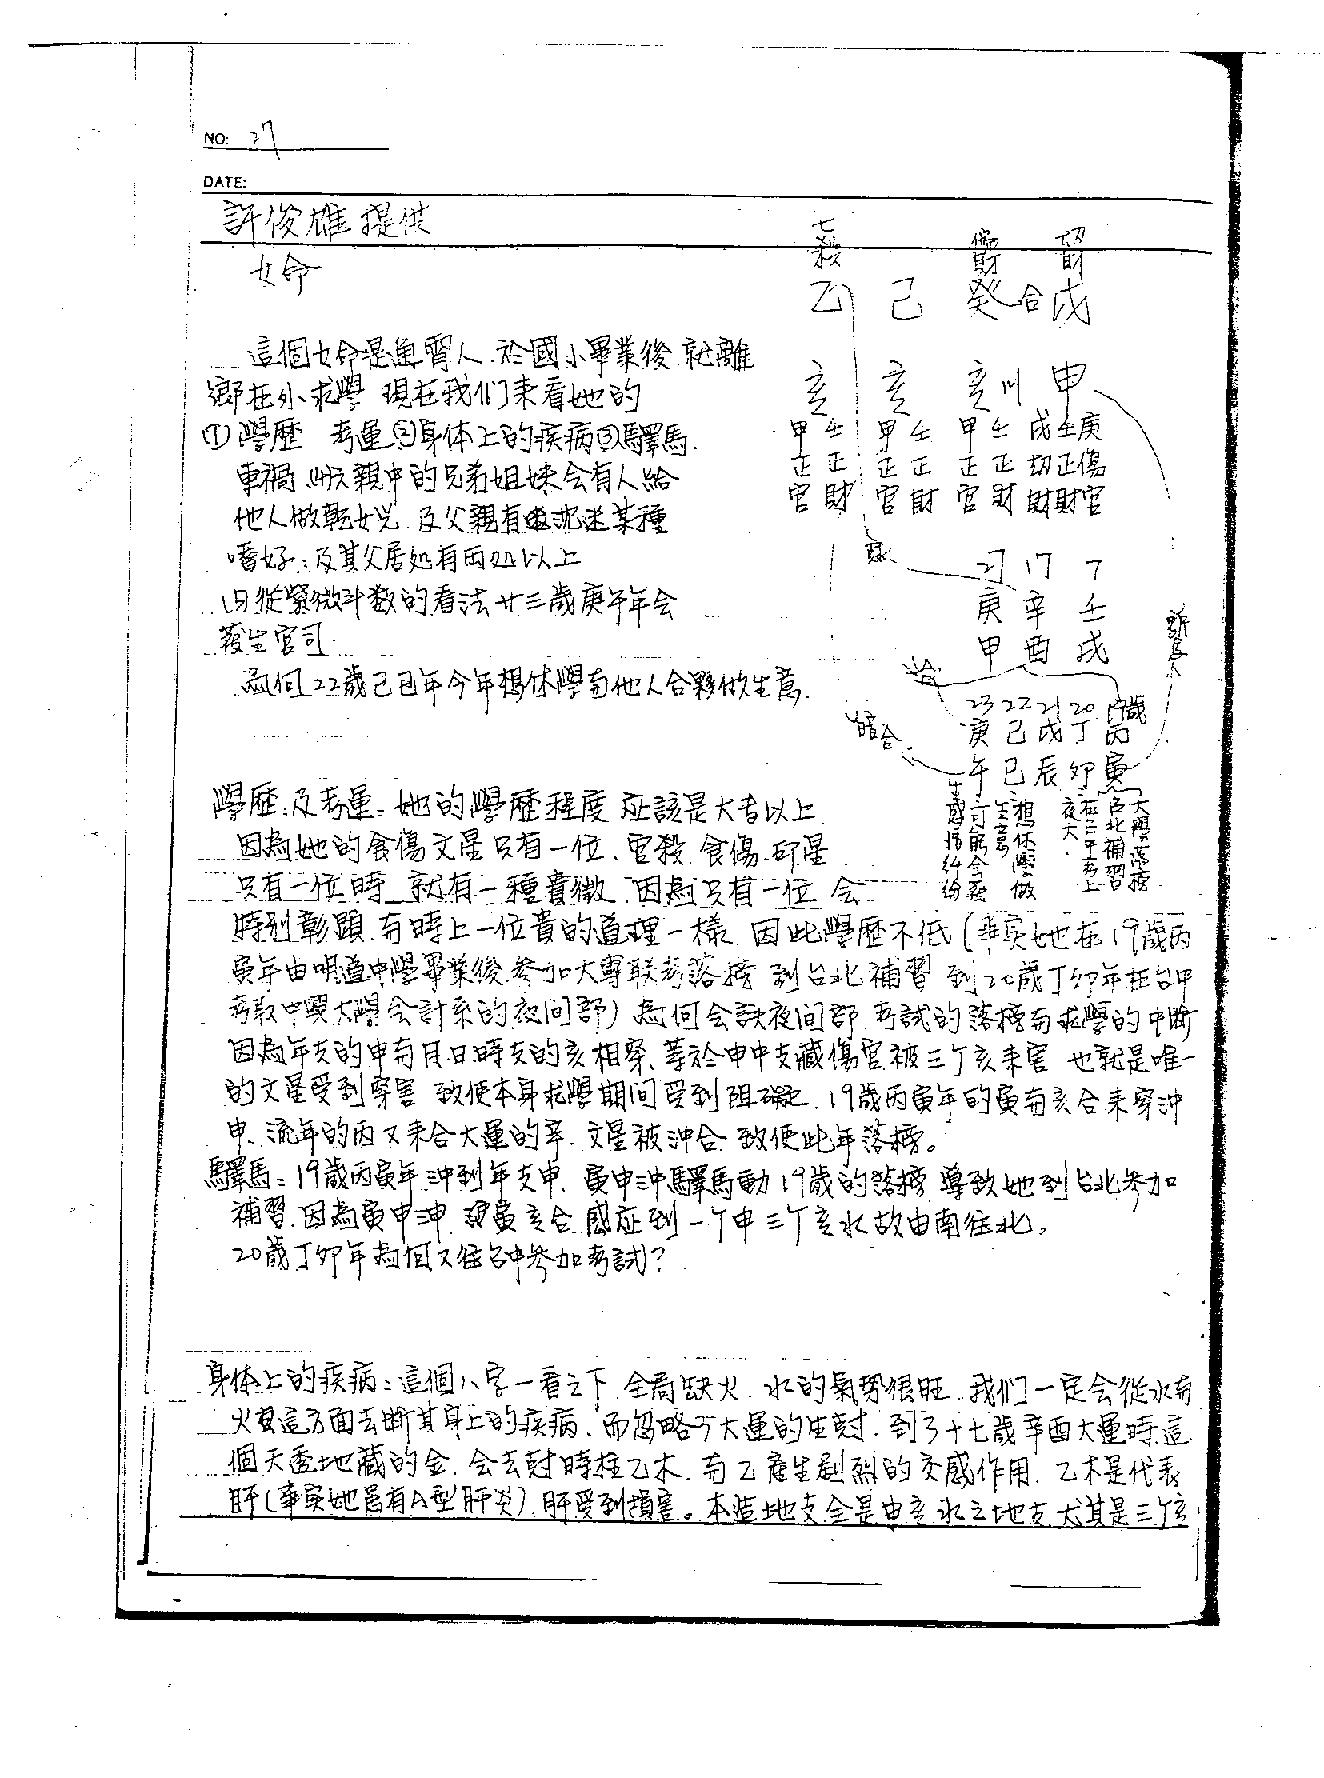 NO: 27
DATE:
許俊雄提供
女命
七殺 偏財 刧財
乙 己 癸合戊
亥 亥 亥 申
甲壬 甲壬 甲壬 戊壬庚
正正 正正 正正 刧正傷
官財 官財 官財 財財官
27 17 7
庚 辛 壬
申 酉 戌
暗合
23 22 21 20 19歲
庚 己 戊 丁 丙
午 巳 辰 卯 寅
大學落榜
台北補習
在台中考上
夜大.
想休學做
生意
可能会發
生感情糾紛
這個女命是 人.於國小畢業後.就離
鄉在外求學 現在我们来看她的
①學歷 考運②身体上的疾病③驛馬.
車禍. 六親中的兄弟姐妹会有人給
他人做乾女兒.及父親有 沉迷某種
嗜好:及其父居処有両処以上
但從紫微斗数的看法廿三歲庚午年会
發生官司
為何22歲己巳年今年想休學与他人合夥做生意.
學歷:及考運:她的學歷程度应該是大專以上
因為她的食傷文星只有一位.官殺.食傷.印星
只有一位時 就有一種貴徵.因為只有一位 会
特别彰顯.与時上一位貴的道理一樣.因此學歷不低(事实她在19歲丙
寅年由 道中學畢業後.参加大專联考落榜 到台北補習 到20歲丁卯年在台中
考取中興大學会計系的夜间部)為何会 夜间部.考試的落榜与求學的中断
因為年支的申与月日時支的亥相穿.等於申中支藏傷官被三个亥来害 也就是唯一
的文星受到穿害 致使本身求學期间受到阻礙.19歲丙寅年的寅与亥合来穿沖
申.流年的丙又来合大運的辛.文星被沖合.致使此年落榜。
驛馬:19歲丙寅年.沖到年支申.寅申沖驛馬動19歲的落榜 導致她到台北参加
補習.因為寅申沖. 寅亥合.感应到一个申三个亥水故由南往北。
20歲丁卯年為何又往台中参加考試?
身体上的疾病:這個八字一看之下.全局缺火.水的氣勢很旺.我们一定会從水与
火 這方面去断其身上的疾病.而忽略了大運的生尅.到了十七歲辛酉大運時.這
個天透地藏的金.会去尅時柱乙木.与乙産生劇烈的交感作用.乙木是代表
肝(事实她患有A型肝炎).肝受到損害。本造地支全是申亥水之地支尤其是三个亥